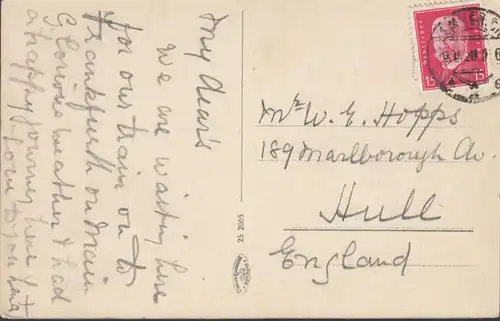 My Dear's
We are waiting here
for our train on to
Frankfurt on Main
Glorious weather & had
a happy journey here
love to you
Mr W. E. Hopps
189 Marlborough Av.
Hull
England
25 2055
15 15